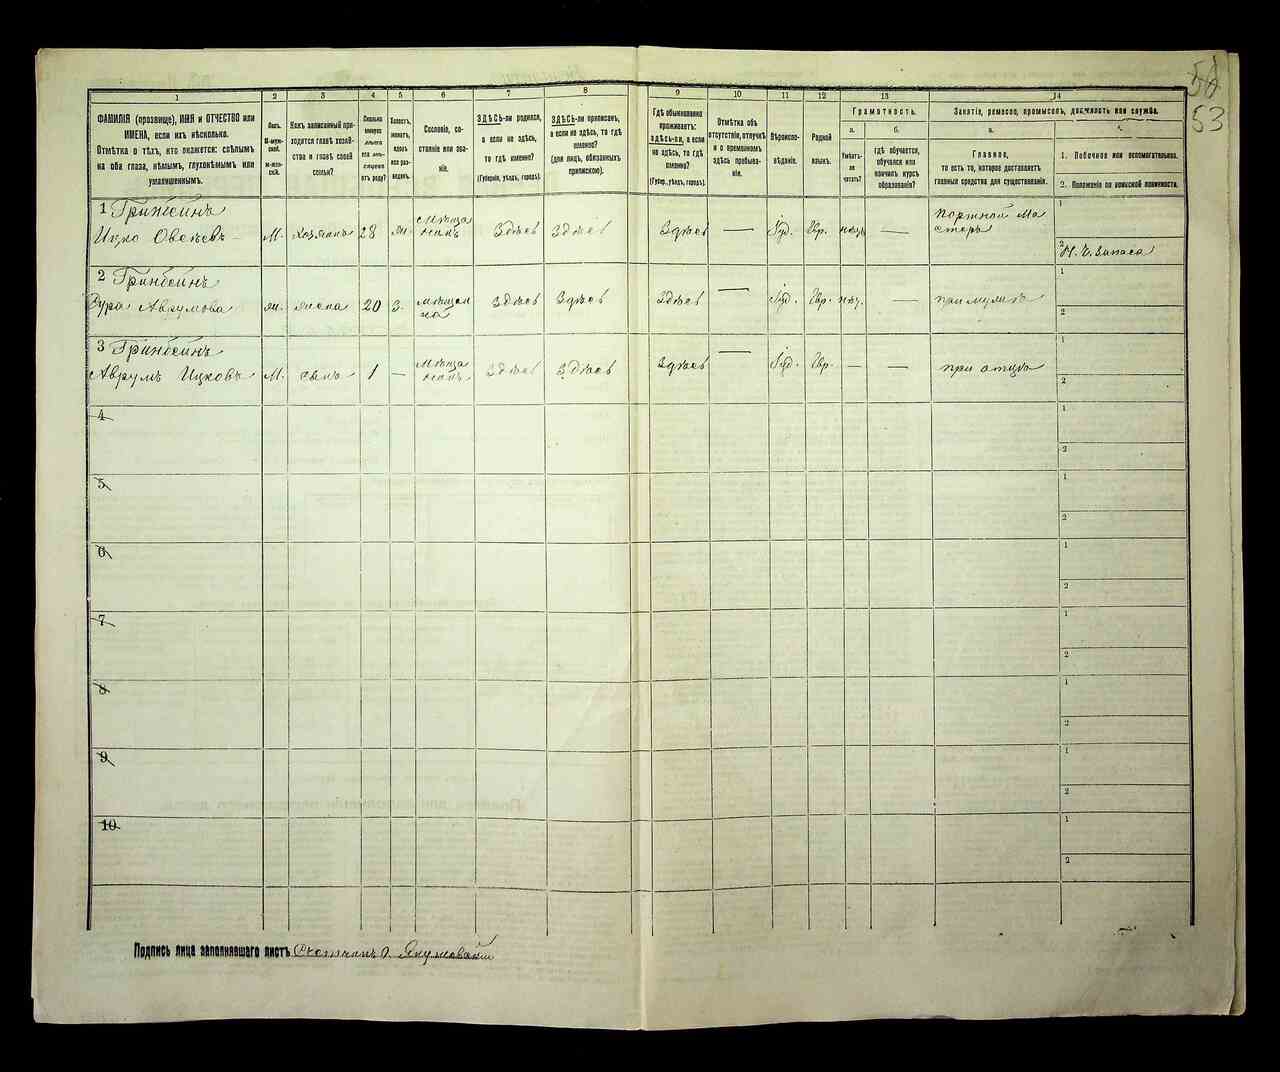 56
53
1
2
3
4
5
6
7
8
9
10
11
12
13
14
ФАМИЛІЯ (прозвище), ИМЯ и ОТЧЕСТВО или
ИМЕНА, если ихъ нѣсколько.
Отмѣтка о тѣхъ, кто окажется: слѣпымъ
на оба глаза, нѣмымъ, глухонѣмымъ или
умалишеннымъ.
Полъ.
М-муж-
ской.
Ж-жен-
скій.
Какъ записанный при-
ходится главѣ хозяй-
ства и главѣ своей
семьи?
Сколько
минуло
лѣтъ
отъ роду?
Холостъ,
женатъ,
вдовъ
или раз-
веденъ.
Сословіе, со-
стояніе или зва-
ніе.
ЗДѢСЬ-ли родился,
а если не здѣсь,
то гдѣ именно?
(Губернія, уѣздъ, городъ).
ЗДѢСЬ-ли приписанъ,
а если не здѣсь, то гдѣ
именно?
(для лицъ, обязанныхъ
припискою).
Гдѣ обыкновенно
проживаетъ:
здѣсь-ли, а если
не здѣсь, то гдѣ
именно?
(Губер., уѣздъ, городъ).
Отмѣтка объ
отсутствіи, отлучкѣ
и о временномъ
здѣсь пребыва-
ніи.
Вѣроиспо-
вѣданіе.
Родной
языкъ.
Грамотность.
а.
Умѣетъ-
ли
читать?
б.
гдѣ обучается,
обучался или
кончилъ курсъ
образованія?
Занятіе, ремесло, промыселъ, должность или служба.
а.
Главное,
то есть то, которое доставляетъ
главныя средства для существованія.
1. Побочное или вспомогательное.
2. Положеніе по воинской повинности.
1 Гринбейнъ
Ицко Овсѣевъ М. хозяинъ 28 ж. мѣща нинъ здѣсь здѣсь здѣсь — Іуд. Евр. — портной ма стеръ 1
2 Н. Ч. запаса
2 Гринбейнъ
Сура Аврумова ж. жена 20 З. мѣщан ка здѣсь здѣсь здѣсь — Іуд. Евр. — при мужѣ 1
2
3 Гринбейнъ
Аврумъ Ицковъ М. сынъ 1 — мѣща нинъ здѣсь здѣсь здѣсь — Іуд. Евр. — — при отцѣ 1
2
4 1
2
5 1
2
6 1
2
7 1
2
8 1
2
9 1
2
10 1
2
Подпись лица заполнявшаго листъ Счетчикъ